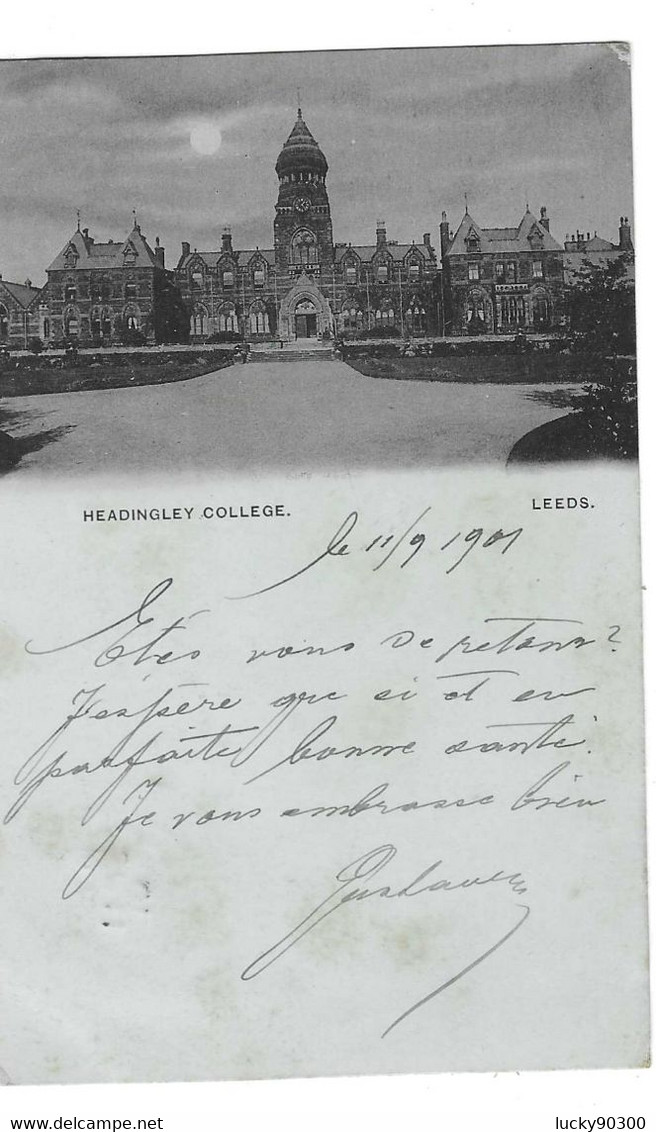 HEADINGLEY COLLEGE.
LEEDS.
le 11/9 1901
Etes vous de retour?
J'espère que si et en
parfaite bonne santé.
Je vous embrasse bien
Gustave
delcampe.net
lucky90300